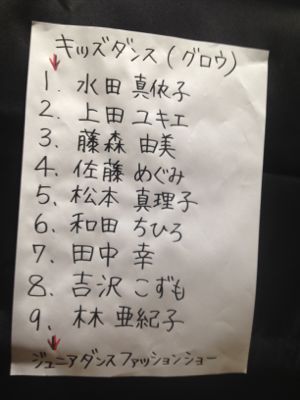 キッズダンス(グロウ)
↓
1. 水田 真依子
2. 上田 ユキエ
3. 藤森 由美
4. 佐藤 めぐみ
5. 松本 真理子
6. 和田 ちひろ
7. 田中 幸
8. 吉沢 こずも
9. 林 亜紀子
↓
ジュニアダンスファッションショー